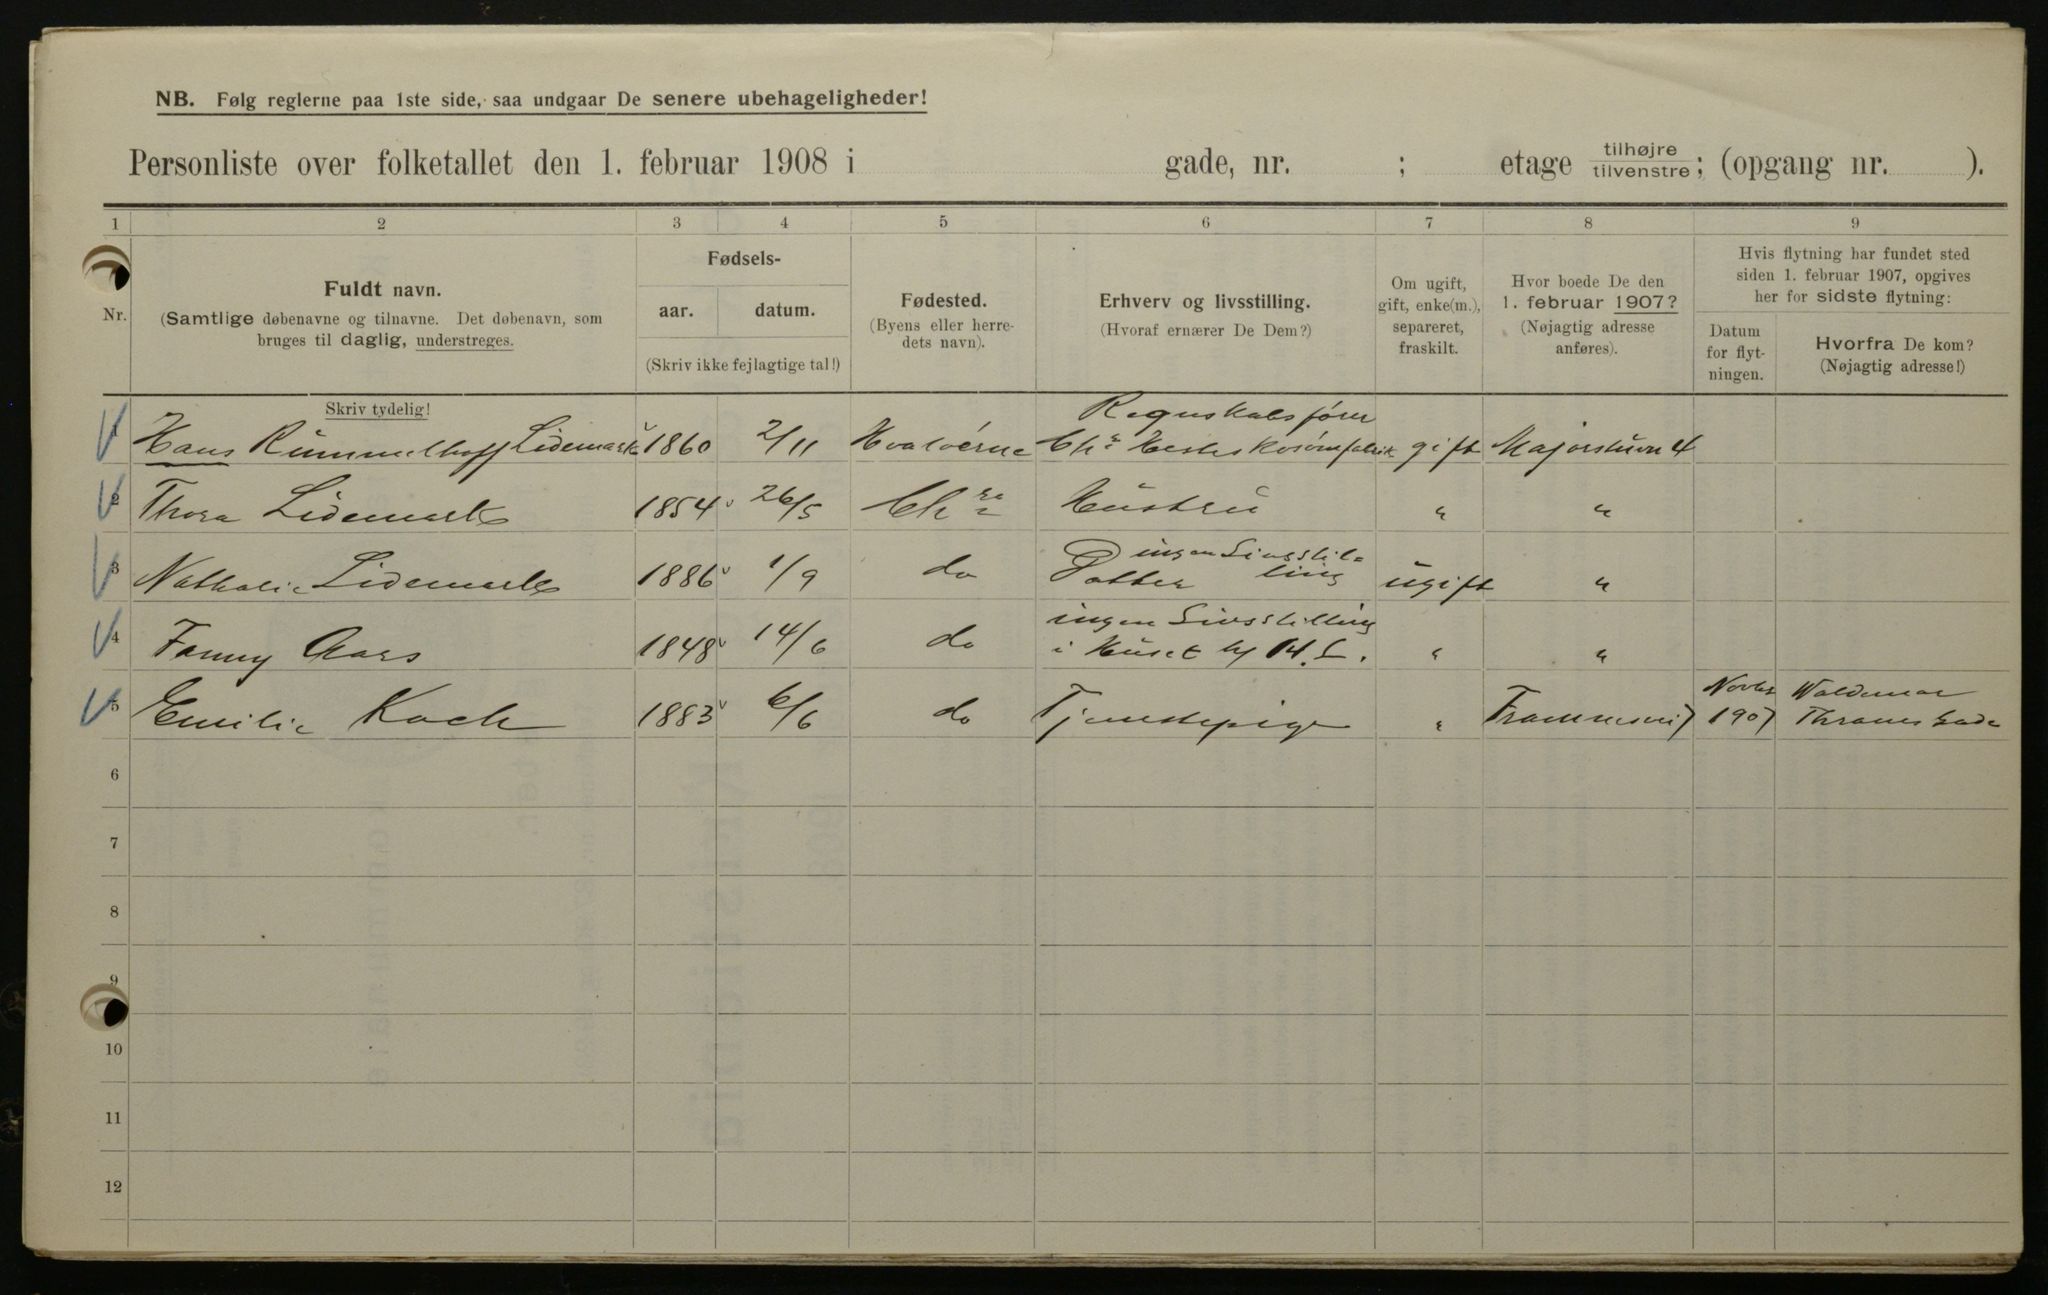 NB. Følg reglerne paa 1ste side, saa undgaar De senere ubehageligheder!
Personliste over folketallet den 1. februar 1908 i gade, nr. ; etage tilhøjre/tilvenstre; (opgang nr. ).
1 2 3 4 5 6 7 8 9
Nr.
Fuldt navn.
(Samtlige døbenavne og tilnavne. Det døbenavn, som
bruges til daglig, understreges.
Skriv tydelig!
Fødsels-
aar. datum.
(Skriv ikke fejlagtige tal!)
Fødested.
(Byens eller herre-
dets navn).
Erhverv og livsstilling.
(Hvoraf ernærer De Dem?)
Om ugift,
gift, enke(m.),
separeret,
fraskilt.
Hvor boede De den
1. februar 1907?
(Nøjagtig adresse
anføres).
Hvis flytning har fundet sted
siden 1. februar 1907, opgives
her for sidste flytning:
Datum
for flyt-
ningen.
Hvorfra De kom?
(Nøjagtig adresse!)
Regnskabsfører
1 Hans Rummelhoff Lidemark 1860 2/11 Hvaløerne Chr. Hesteskosømfabrik gift Majorstuvn 4
2 Thora Lidemark 1854 26/5 Chra Hustru " "
ingen Livsstil=
3 Nathalie Lidemark 1886 1/9 do Datter ling ugift "
ingen Livsstilling
4 Fanny Aars 1848 14/6 do i Huset hj H. L. " "
Novbr Waldemar
5 Emilie Koch 1883 6/6 do Tjenestepige " 1907 Thranes Gade
6
7
8
9
10
11
12